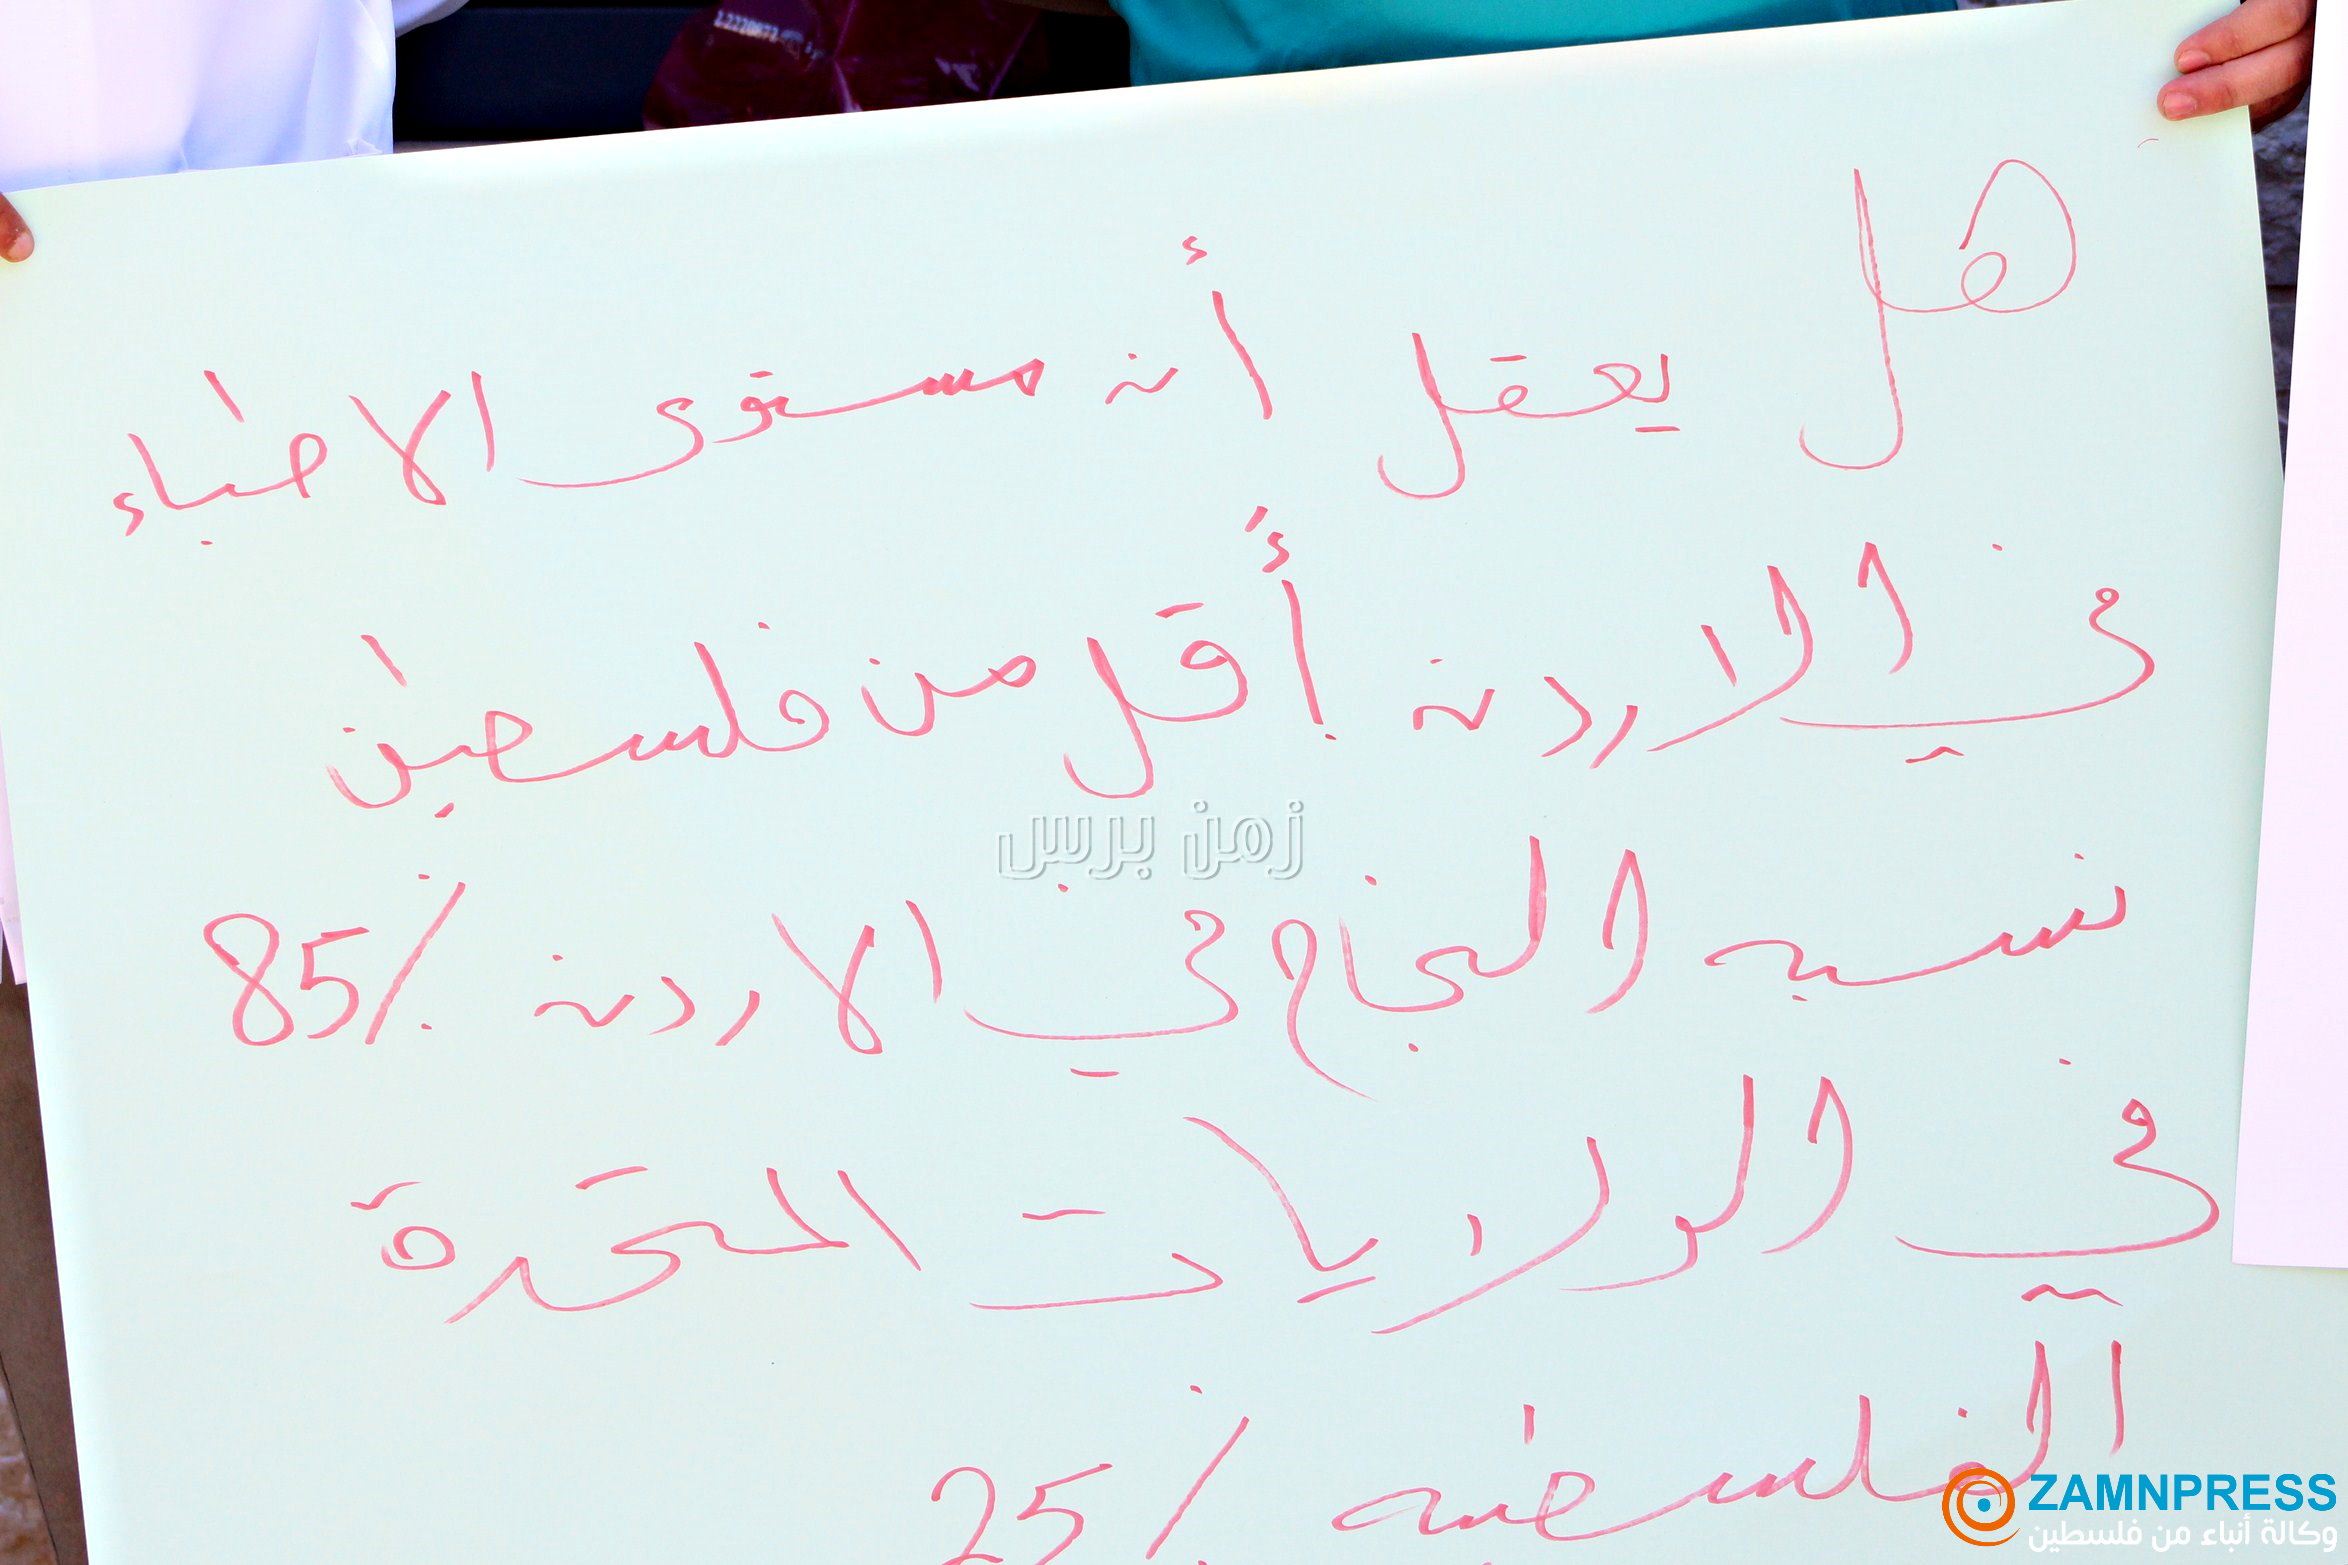 هل يعقل أن مستوى الاطباء
في الاردن أقل من فلسطين
زمن برس
نسبه النجاح في الاردن 85%
في الولايات المتحدة
الفلسطنيه 25%
ZAMNPRESS
وكالة أنباء من فلسطين